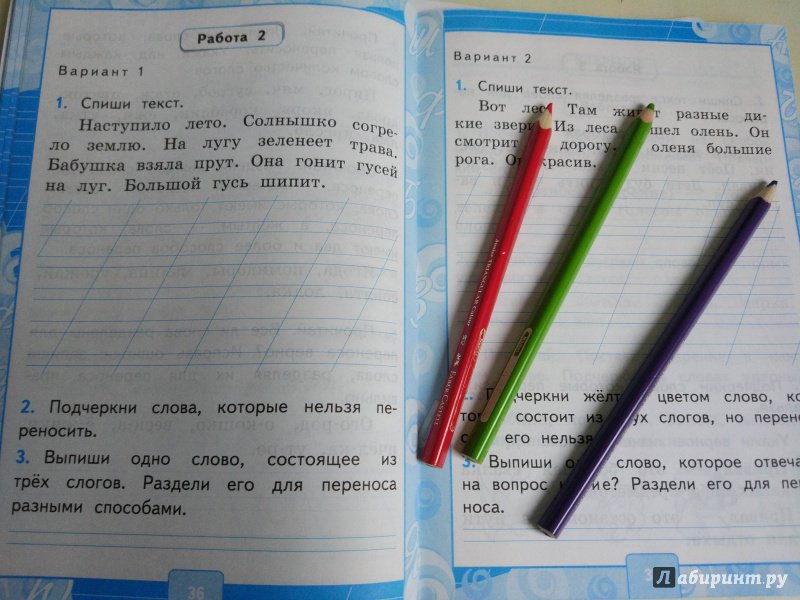 Работа 2
Вариант 1
1. Спиши текст.
Наступило лето. Солнышко согре-
ло землю. На лугу зеленеет трава.
Бабушка взяла прут. Она гонит гусей
на луг. Большой гусь шипит.
2. Подчеркни слова, которые нельзя пе-
реносить.
3. Выпиши одно слово, состоящее из
трёх слогов. Раздели его для переноса
разными способами.
36
Вариант 2
1. Спиши текст.
Вот лес. Там разные ди-
кие звери. Из леса олень. Он
смотрит дорогу. оленя большие
рога. красив.
Подчеркни цветом слово,
состоит из слогов, но
его нельзя
3. Выпиши слово, которое
на вопрос Раздели его для
носа.
FABER-CASTELL
Лабиринт.ру